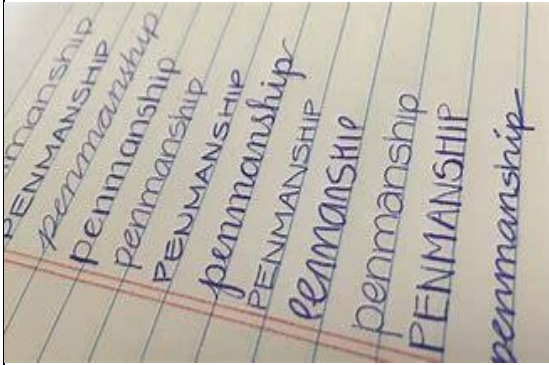 manship
PENMANSHIP
penmanship
penmanship
penmanship
PENMANSHIP
penmanship
PENMANSHIP
penmanSHIP
penmanship
PENMANSHIP
penmanship